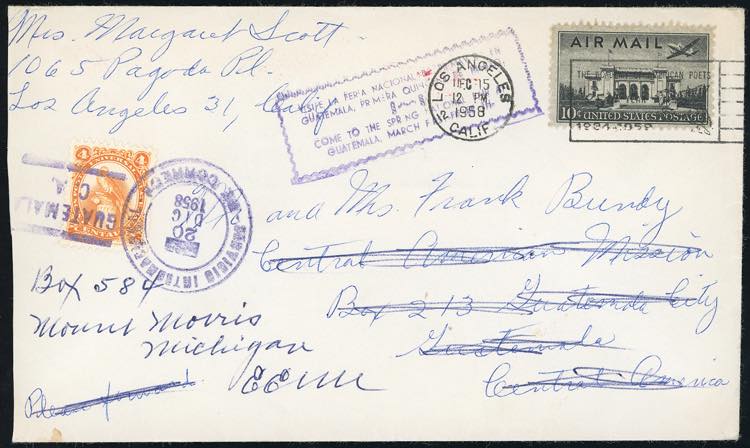 Mrs. Margaret Scott
1065 Pagoda Pl.
Los Angeles 31, Calif
VISITE LA FERIA NACIONAL
GUATEMALA, PRIMERA
COME TO THE SPRING
GUATEMALA, MARCH
LOS ANGELES
DEC 15
12 PM
1958
CALIF.
AIR MAIL
10¢ UNITED STATES POSTAGE
4
GUATEMALA
C. A.
SERVICIO
DE CORREOS
20
DIC
1958
and Mrs. Frank Bundy
Central American Mission
Box 213 Guatemala City
Guatemala
Central America
Box 584
Mount Morris
Michigan
EE UU
Please forward